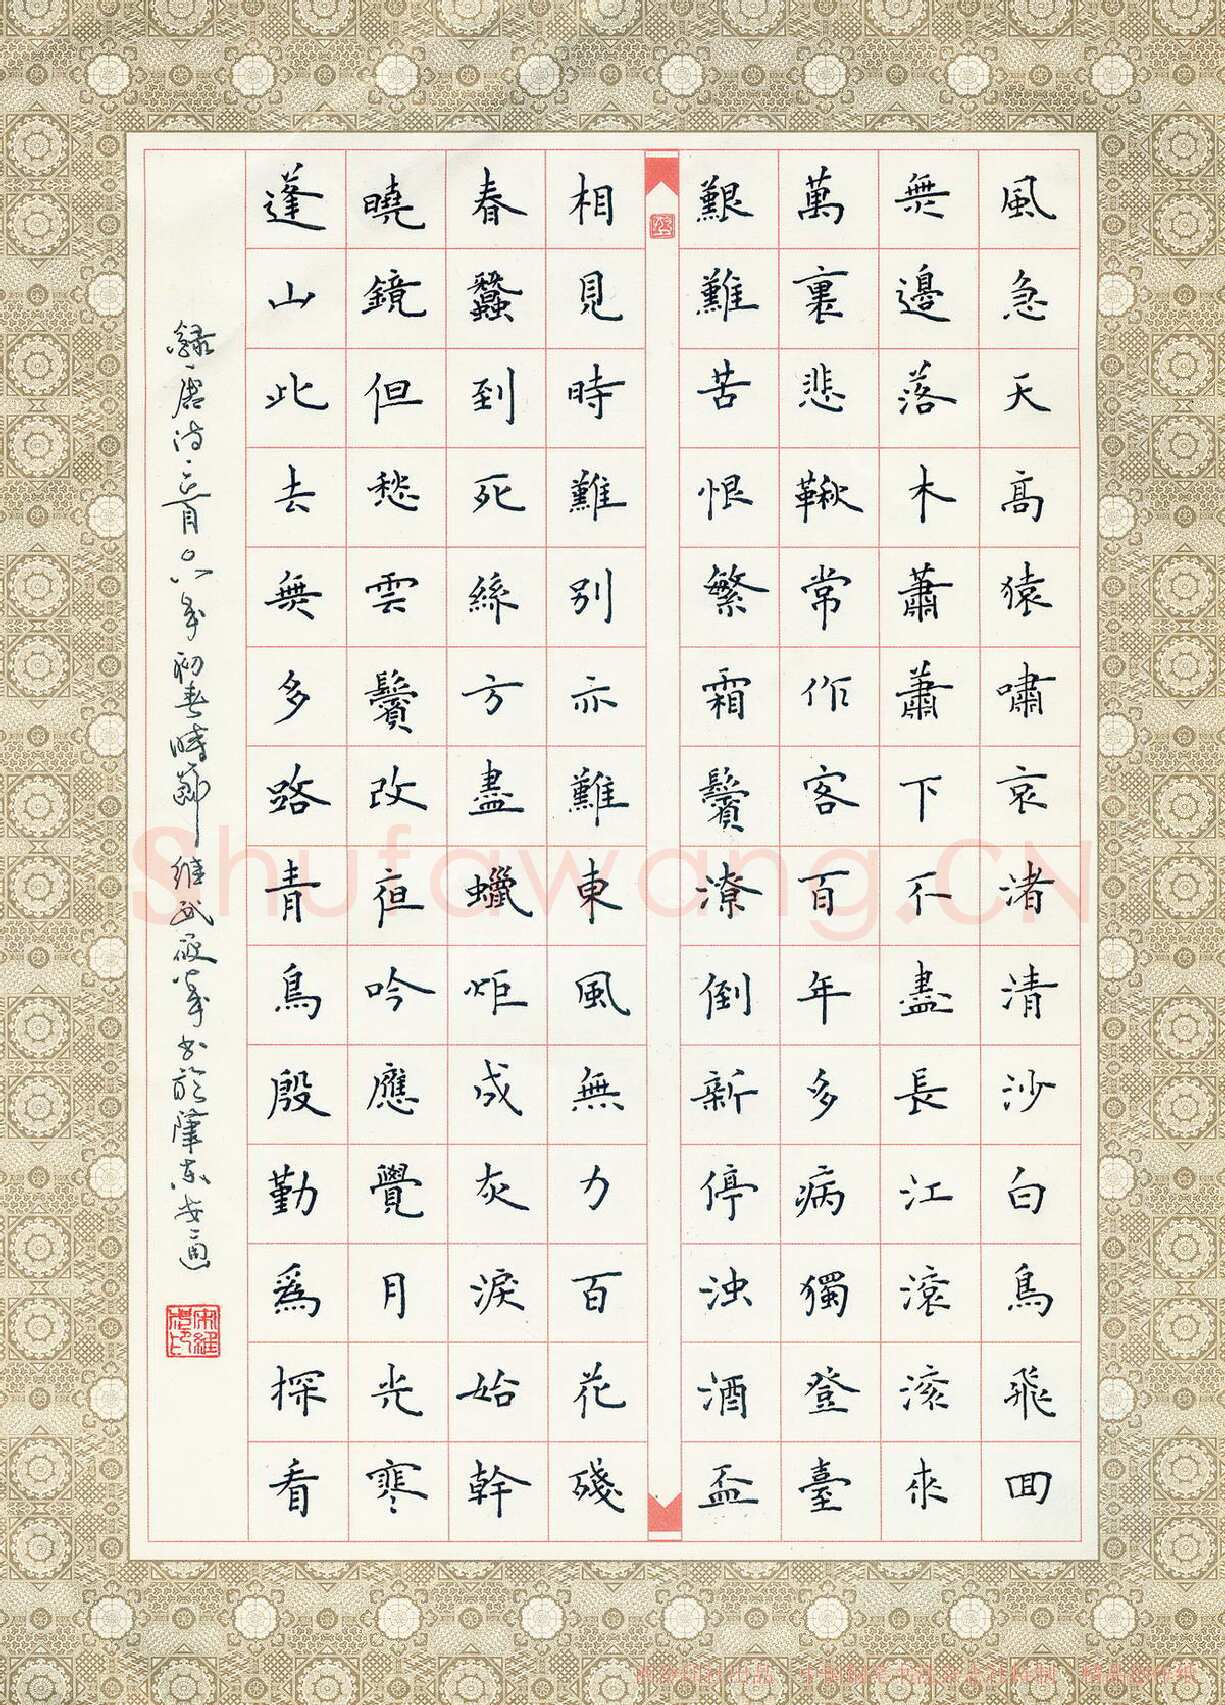 風急天高猿嘯哀渚清沙白鳥飛回
無邊落木蕭蕭下不盡長江滾滾來
萬裏悲鞦常作客百年多病獨登臺
艱難苦恨繁霜鬢潦倒新停浊酒盃
相見時難別亦難東風無力百花殘
春蠶到死絲方盡蠟炬成灰淚始幹
曉鏡但愁雲鬢改夜吟應覺月光寒
蓬山此去無多路青鳥殷勤為探看
錄唐詩二首〇八年初春時節維武硬筆書於肇東
Shufawang.CN